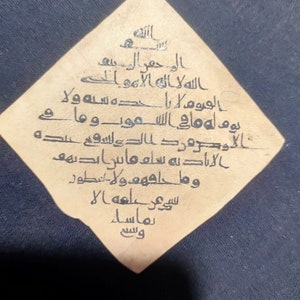 الله
بسم
الرحمن الرحيم
الله لا اله الا هو الحي
القيوم لا تاخذه سنه ولا
نوم له ما في السموت وما في
الارض من ذا الذي يشفع عنده
الا باذنه يعلم ما بين ايديهم
وما خلفهم ولا يحيطون
بشي من علمه الا
بما شا
وسع